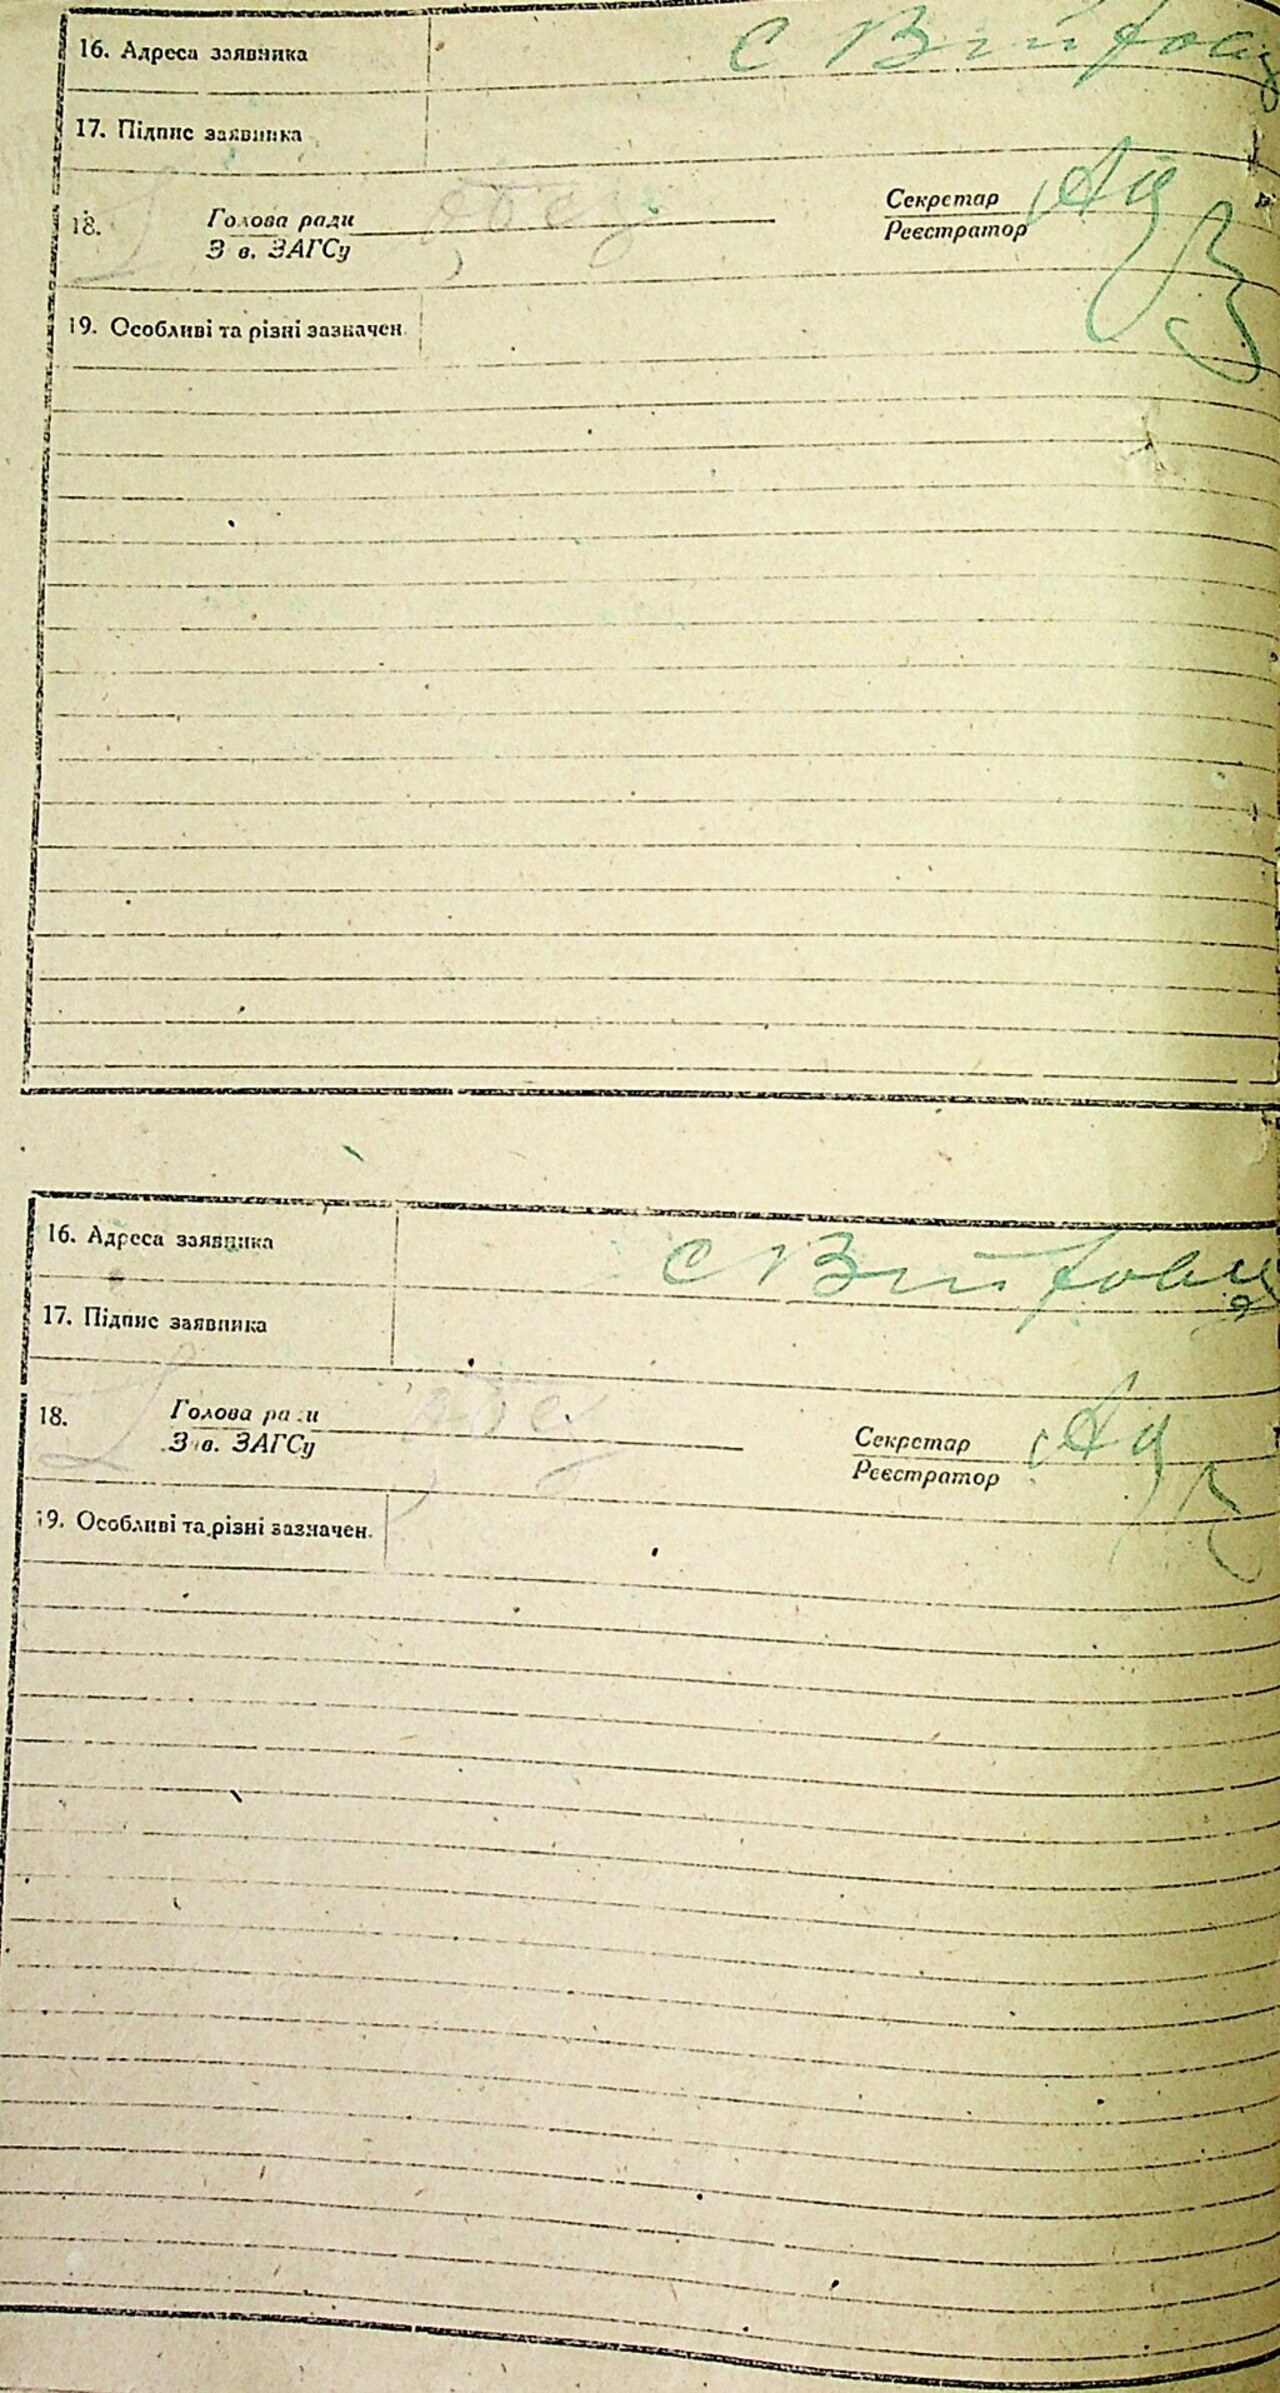 16. Адреса заявника
с Війтовц
17. Підпис заявника
18. Голова ради
З в. ЗАГСу
Секретар
Реєстратор
19. Особливі та різні зазначен.
16. Адреса заявника
с Війтовц
17. Підпис заявника
18. Голова ради
З в. ЗАГСу
Секретар
Реєстратор
19. Особливі та різні зазначен.